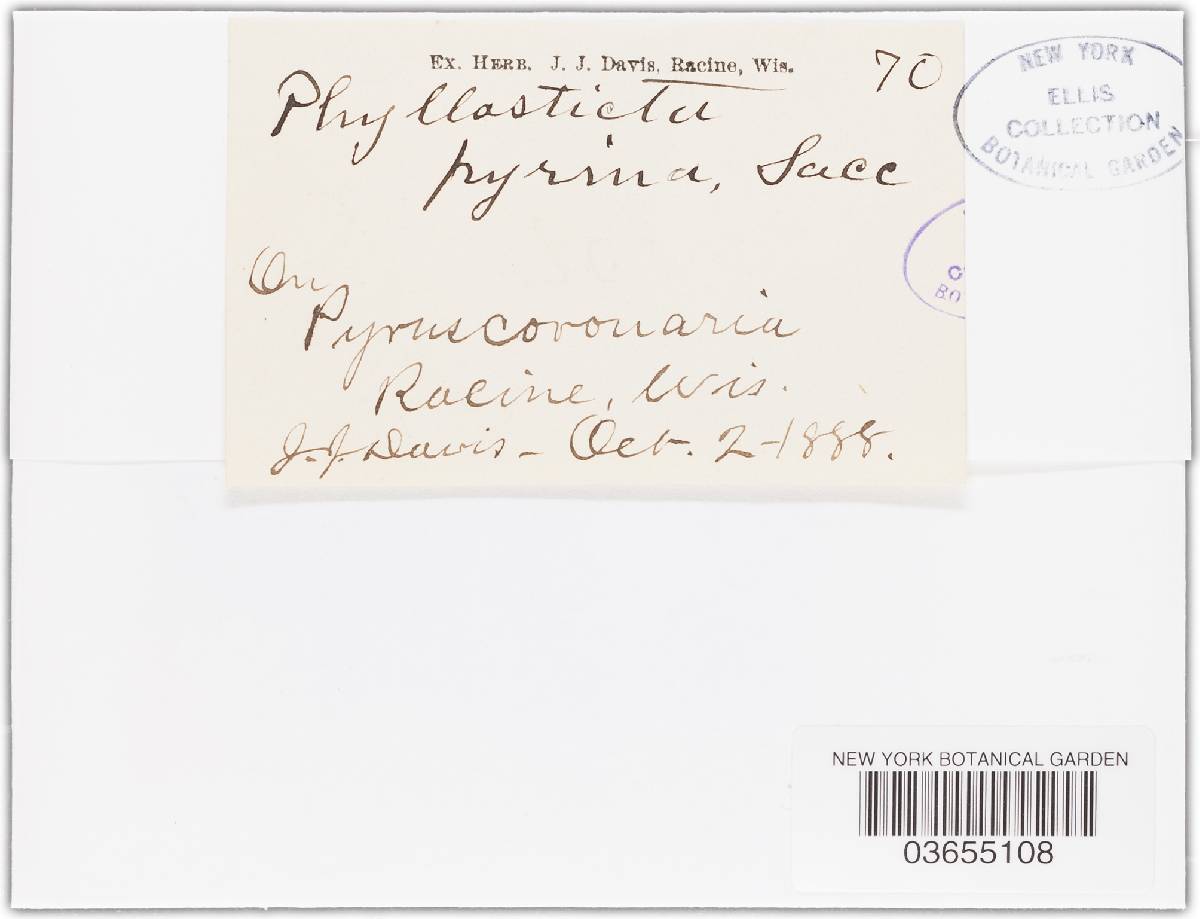 Ex. Herb. J. J. Davis, Racine, Wis.
70
Phyllosticta
pyrina, Sacc
On
Pyrus coronaria
Racine, Wis.
J. J. Davis - Oct. 2 - 1888.
NEW YORK
ELLIS
COLLECTION
BOTANICAL GARDEN
BO
NEW YORK BOTANICAL GARDEN
03655108